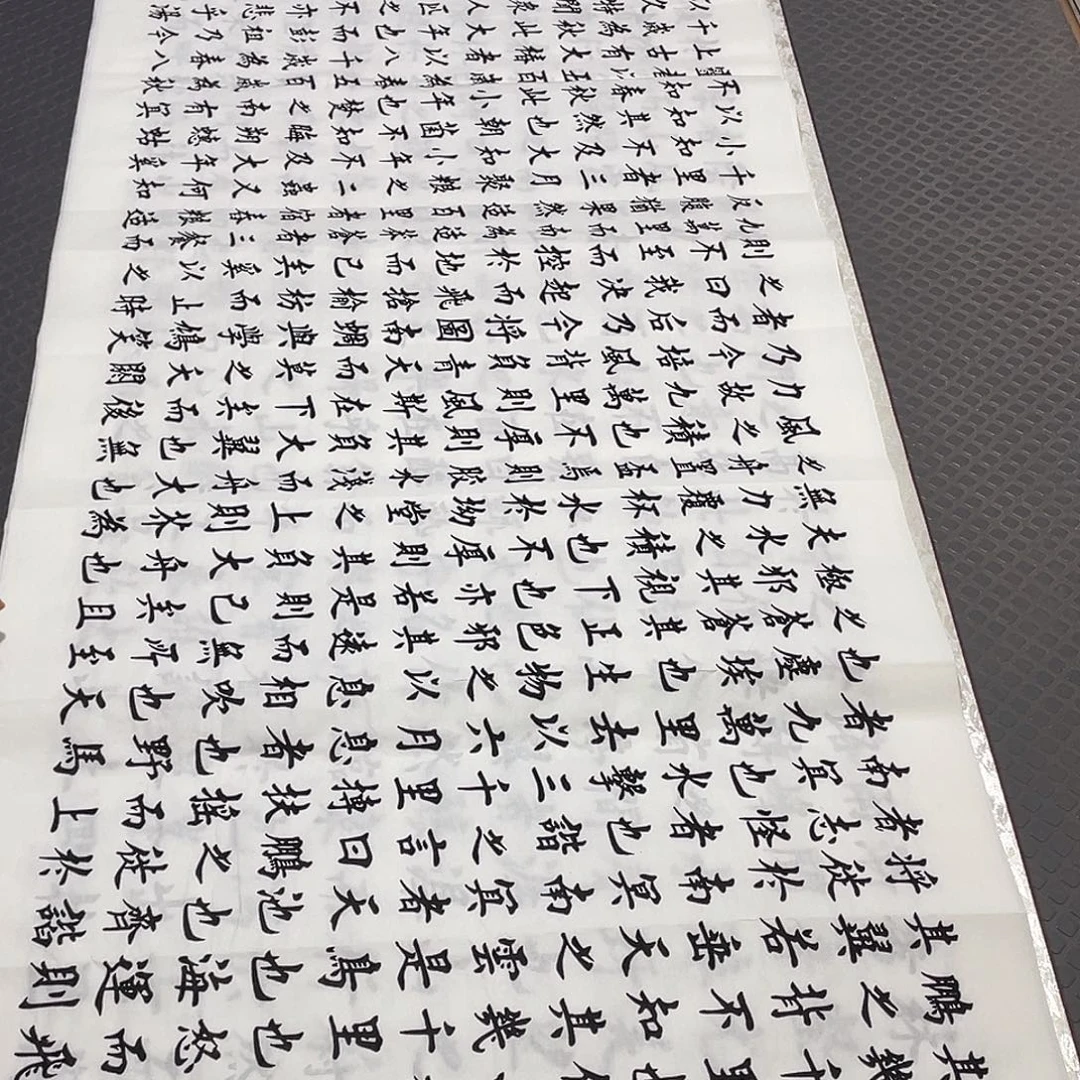 鵬之背不知其幾千里也怒而飛
其翼若垂天之雲是鳥也海運則
將徙於南冥南冥者天池也齊諧
者志怪者也諧之言曰鵬之徙於
南冥也水擊三千里摶扶搖而上
者九萬里去以六月息者也野馬
也塵埃也生物之以息相吹也天
之蒼蒼其正色邪其遠而無所至
極邪其視下也亦若是則已矣且
夫水之積也不厚則其負大舟也
無力覆杯水於坳堂之上則芥為
之舟置盃焉則膠水淺而舟大也
風之積也不厚則其負大翼也無
力故九萬里則風斯在下矣而後
乃今培風背負青天而莫之夭閼
者而後乃今將圖南蜩與學鳩笑
之曰我決起而飛搶榆枋而止時
則不至而控於地而已矣奚以之
九萬里而南為適莽蒼者三餐而
反腹猶果然適百里者宿舂糧適
千里者三月聚糧之二蟲又何知
小知不及大知小年不及大年奚
以知其然也朝菌不知晦朔蟪蛄
不知春秋此小年也楚之南有冥
靈者以五百歲為春五百歲為秋
上古有大椿者以八千歲為春八
千歲為秋此大年也而彭祖乃今
以久特聞眾人匹之不亦悲乎湯